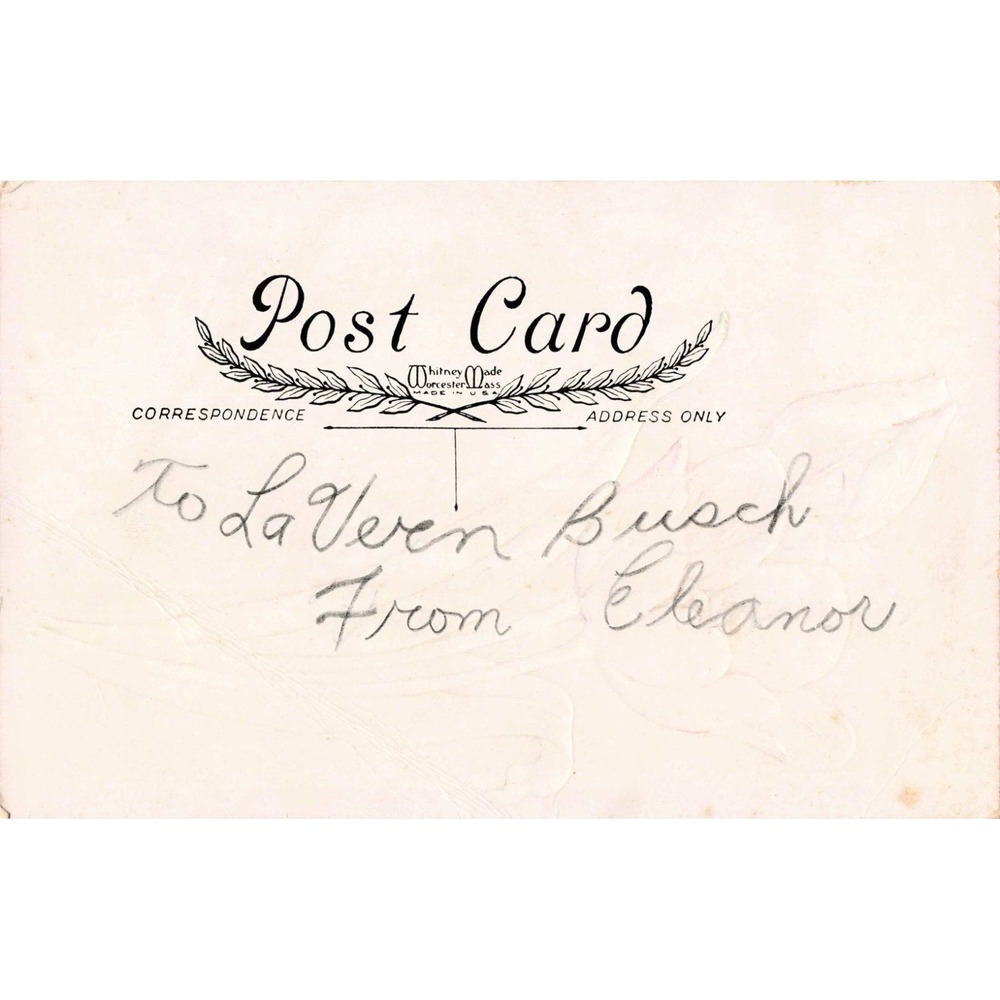 Post Card
Whitney Made
Worcester Mass
MADE IN USA
CORRESPONDENCE
ADDRESS ONLY
To LaVern Busch
From Eleanor